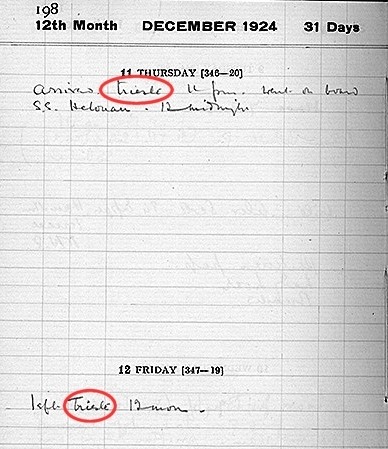 198
12th Month DECEMBER 1924 31 Days
11 THURSDAY [346—20]
arrives Trieste 11 pm. went on board
S.S. Helouan. 12 midnight
12 FRIDAY [347—19]
left Trieste 12 noon.